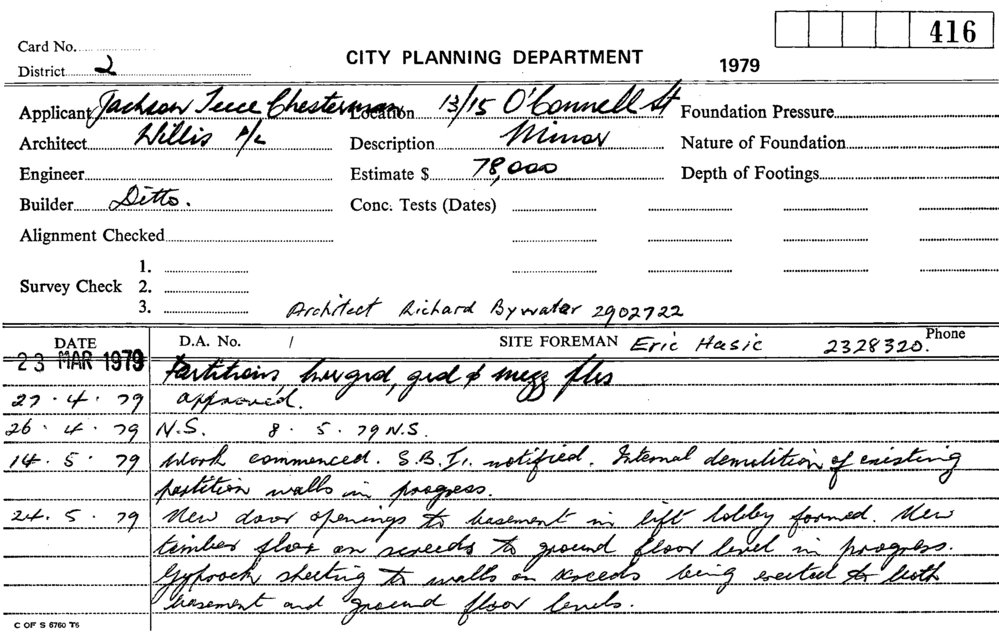 416
Card No.
CITY PLANNING DEPARTMENT
1979
District 2
Applicant Jackson Teece Chesterman Location 13/15 O'Connell St Foundation Pressure
Architect Willis P/L Description Minor Nature of Foundation
Engineer Estimate $ 78,000 Depth of Footings
Builder Ditto. Conc. Tests (Dates)
Alignment Checked
1.
Survey Check 2.
3.
Architect Richard Bywater 2902722
DATE D.A. No. / SITE FOREMAN Eric Hasic 2328320. Phone
23 MAR 1979 Partitions, lwr grd, grd & mezz flrs
27.4.79 approved.
26.4.79 N.S. 8.5.79 N.S.
14.5.79 Work commenced. S.B.I. notified. Internal demolition of existing
partition walls in progress.
24.5.79 New door openings to basement in lift lobby formed. New
timber floor on screeds to ground floor level in progress.
Gyprock sheeting to walls on screeds being erected to both
basement and ground floor levels.
C OF S 6760 T6